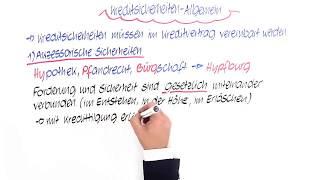 Kreditsicherheiten-Allgemein
→ Kreditsicherheiten müssen im Kreditvertrag vereinbart werden
1) Akzessorische Sicherheiten
Hypothek, Pfandrecht, Bürgschaft → Hypfbürg
Forderung und Sicherheit sind gesetzlich miteinander
verbunden (im Entstehen, in der Höhe, im Erlöschen)
→ mit Kredittilgung